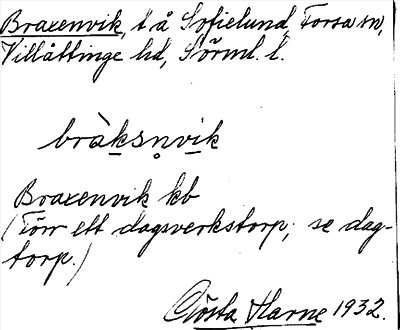 Braxenvik, t å Sofielund, Forsa sn,
Villåttinge hd, Sörml. l.
bràksn̥vik
Braxenvik kb
(Förr ett dagsverkstorp; se dag-
torp.)
Gösta Harne 1932.